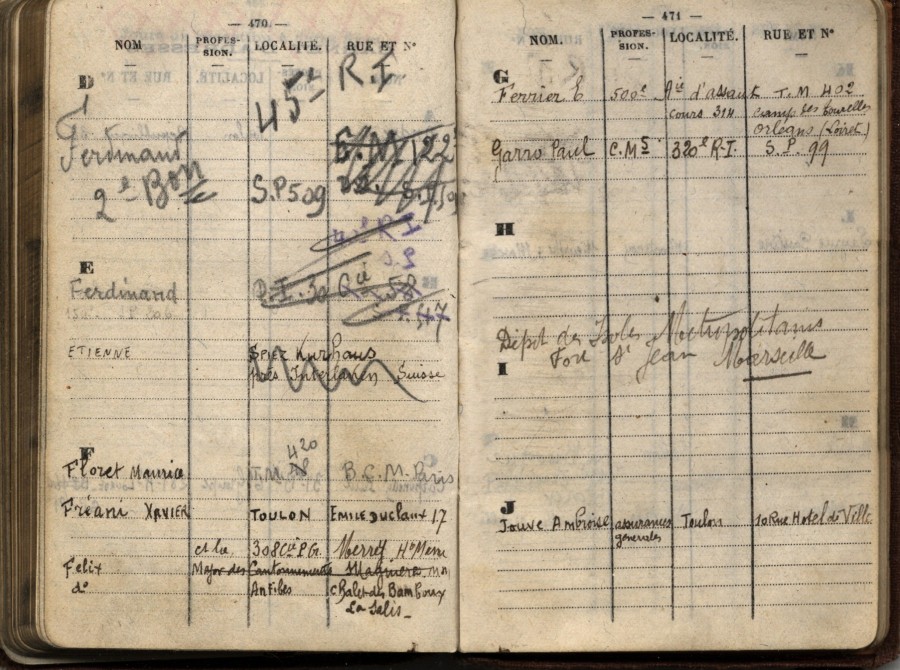 — 470. —
NOM
PROFES-SION.
LOCALITÉ.
RUE ET N°
D
45e R.I.
Ferdinand
2e Bon
S.P 509
R I
E
Ferdinand
30 Cie 58
ETIENNE Spiez Kurhaus
près Interlaken Suisse
F
420
Floret Maurice T.M. B.C.M. Paris
Fréani XAVIER TOULON EMILE Duclaux 17
et la 308 Cie P.G.
Felix Major des Cantonnements
do Antibes chalet des Bamboux
La Salis
— 471 —
NOM.
PROFES-SION.
LOCALITÉ.
RUE ET N°
G
Ferrier E 500e Aie d'assaut T.M 402
cours 314 champ des Tourelles
Orleans (Loiret)
Garro Paul C.M5 320e R.I. S.P. 99
H
Dépot des Isolés Métropolitains
Fort St Jean Marseille
I
J
Jouve Ambroise assurances Toulon 10 Rue Hotel de Ville
générales